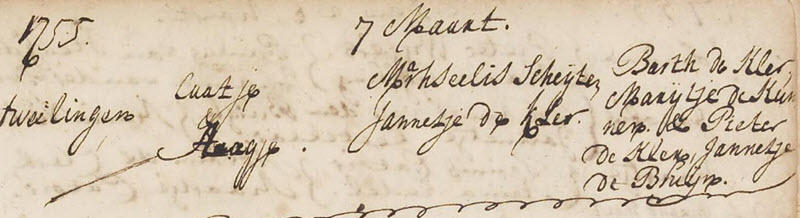 1755. 7 Maart.
tweelingen
Caatje
&
Aaagje.
Mathseelis Scheyte,
Jannetje de Kler.
Barth de Kler,
Marijtje de Kun
ner. & Pieter
de Kler, Jannetje
de Bruijn.